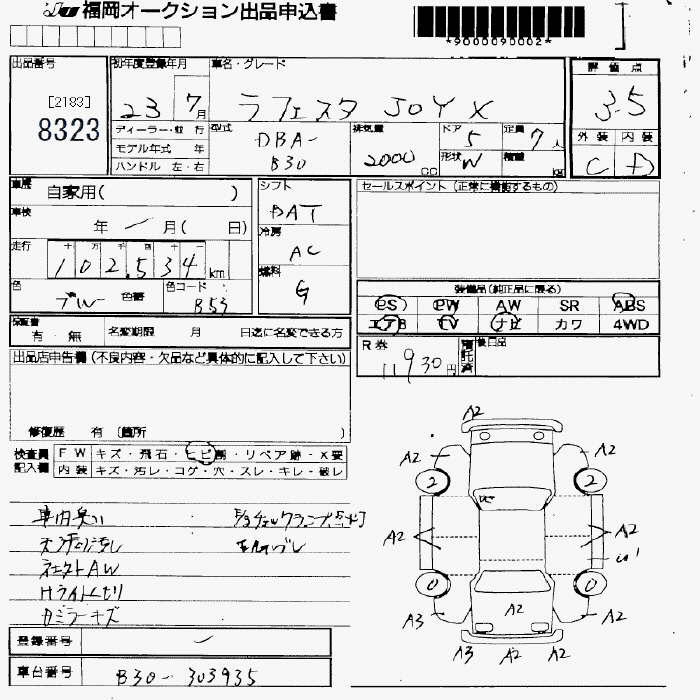 福岡オークション出品申込書
*9000090002*
出品番号 初年度登録年月 車名・グレード 評価点
[2183]
8323
23 7月 ラフェスタ JOY X 3.5
ディーラー・並行 型式 DBA-B30 排気量 2000 CC ドア 5 定員 7人 外装 内装
モデル年式 年 形状 W 積載 kg C D
ハンドル 左・右
車歴 自家用( ) シフト DAT セールスポイント (正常に機能するもの)
車検 年 / 月( 日) 冷房 AC
走行 十 万 千 百 十
102,534 km 燃料 G
色 ブルー 色替 色コード B53
装備品(純正品に限る)
PS PW AW SR ABS
エアB TV ナビ カワ 4WD
保証書 有・無 名変期限 月 日迄に名変できる方
R券 11930円 後日品
出品店申告欄 (不良内容・欠品など具体的に記入して下さい)
修復歴 有 〔箇所 〕
検査員記入欄 FW キズ・飛石・ヒビ割・リペア跡・X要
内装 キズ・汚レ・コゲ・穴・スレ・キレ・破レ
車内臭い
HライトくもりA
ミラーキズ
A2
A2 A2
2 2
A2 A2
0 0
A2
A3 A2
A3 A2 A2
登録番号
車台番号 B30-303935